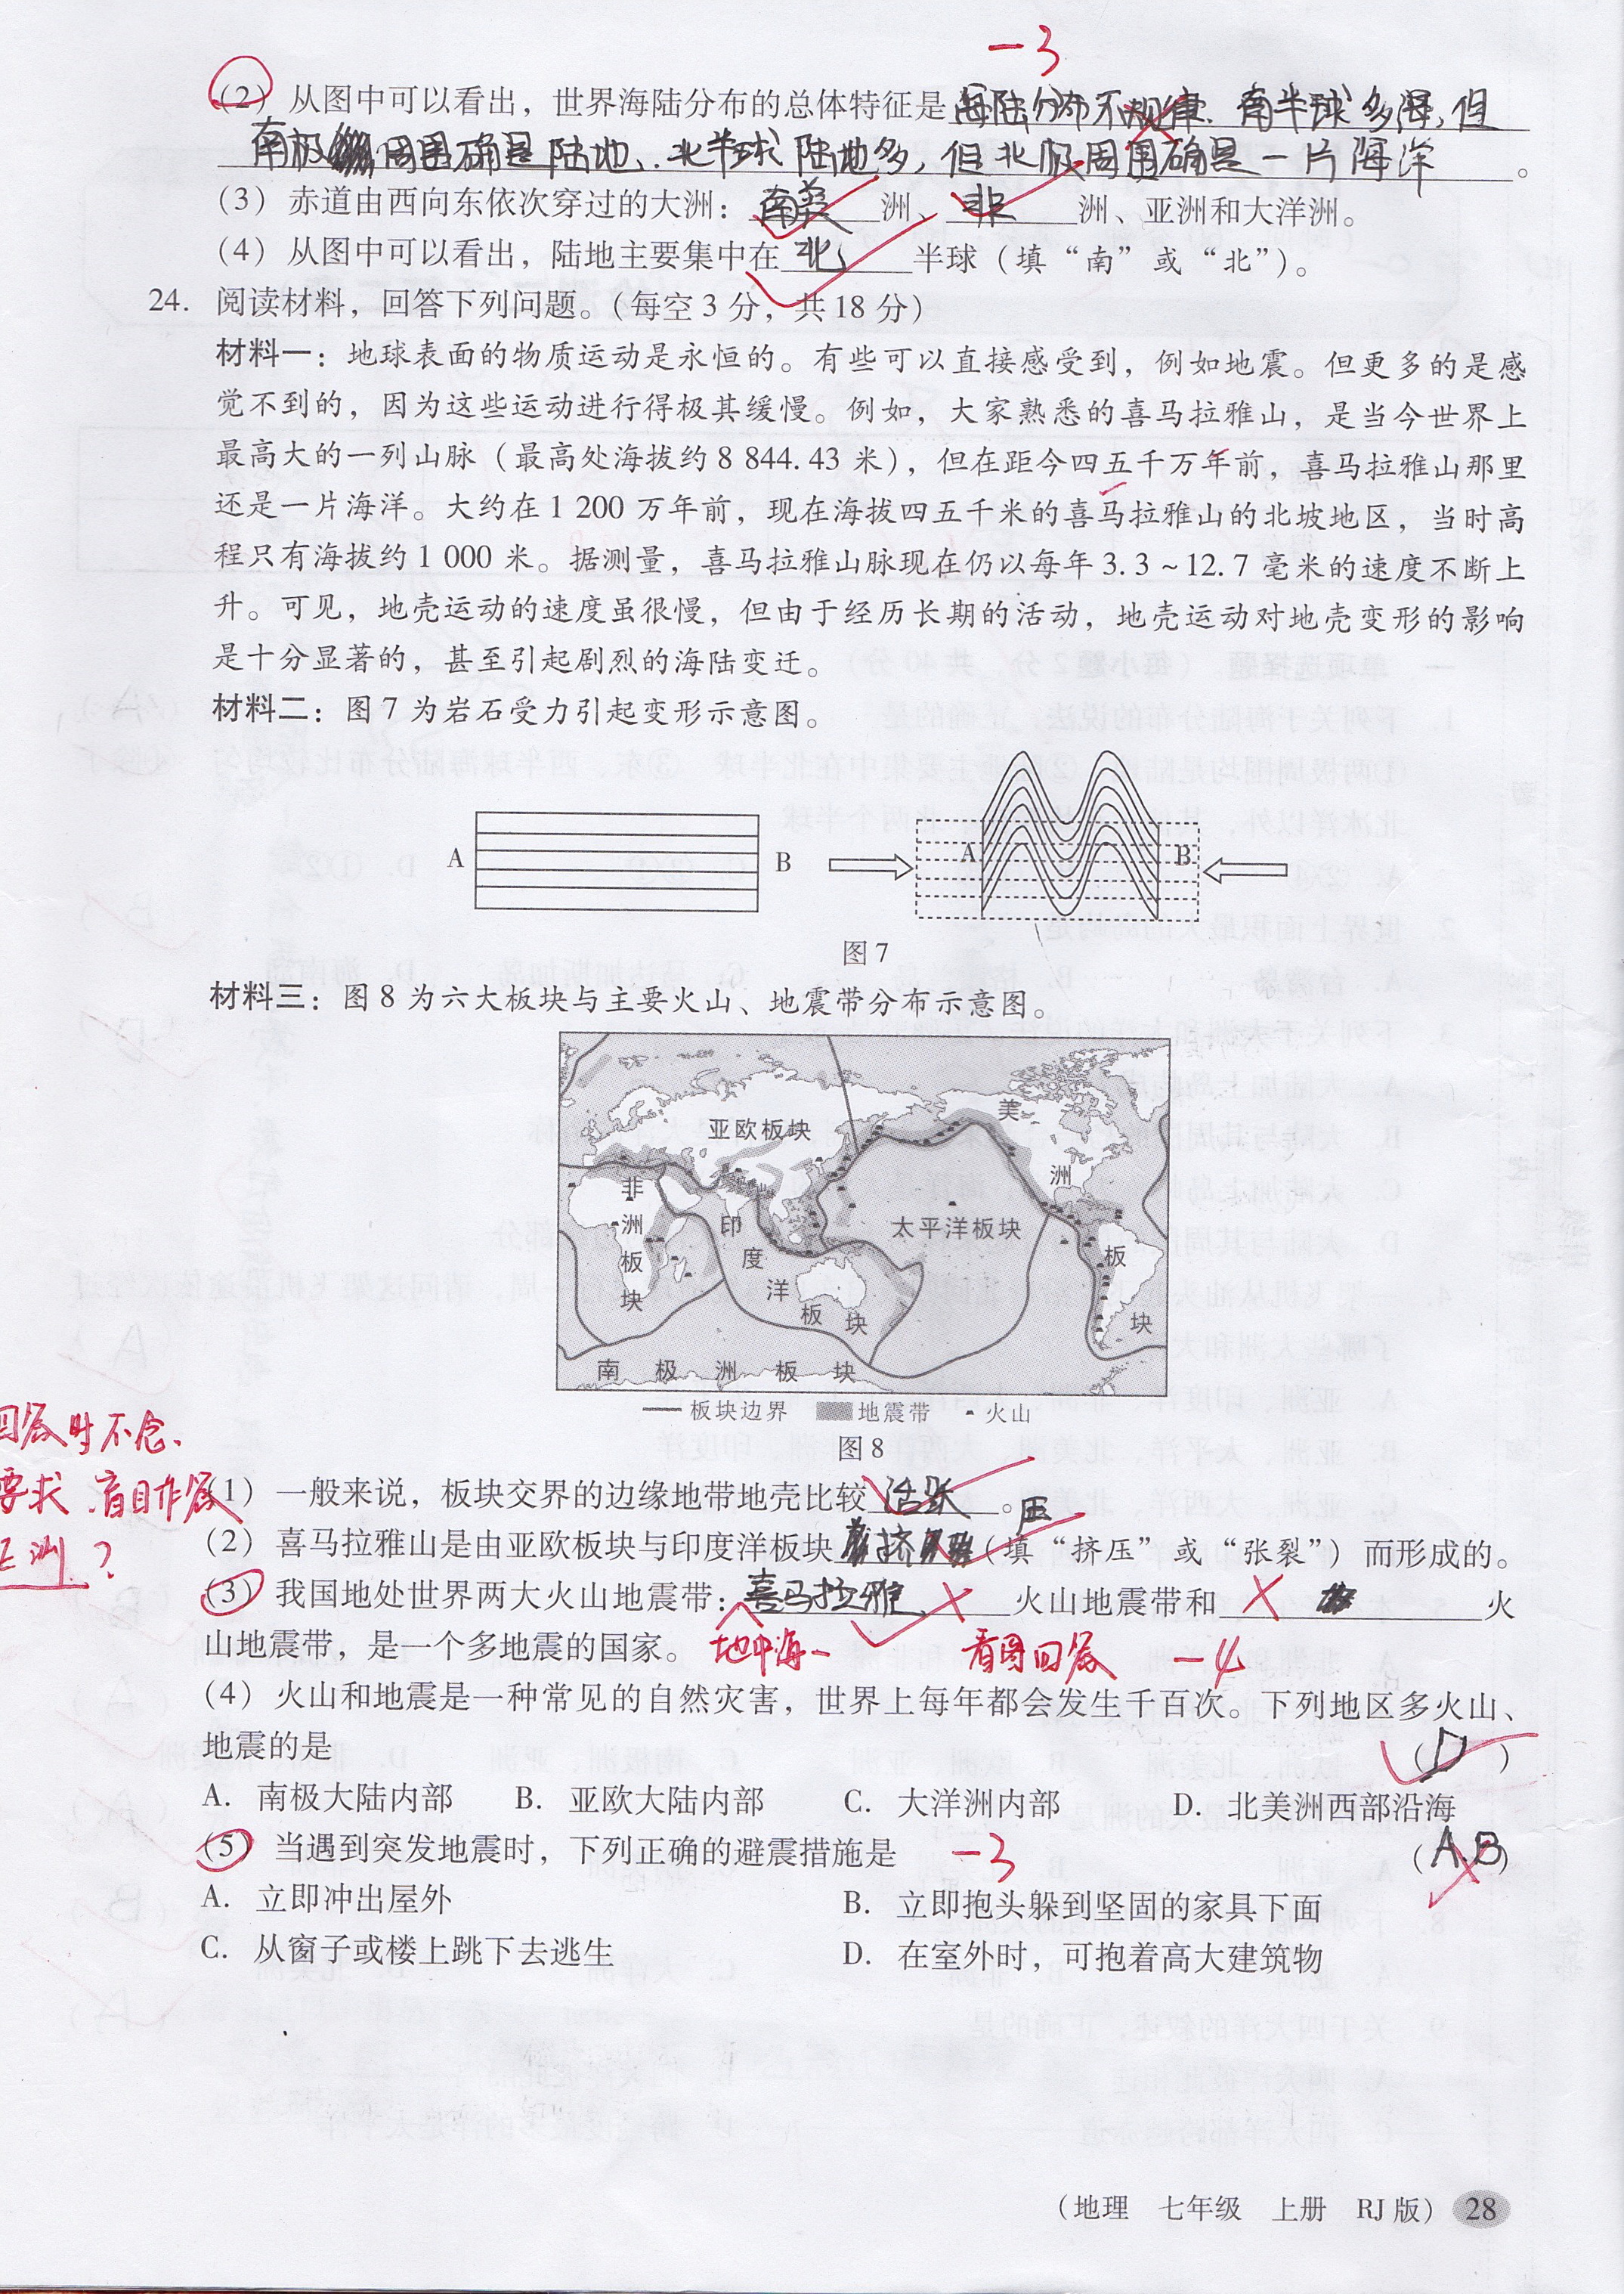 -3
(2) 从图中可以看出，世界海陆分布的总体特征是海陆分布不规律. 南半球多海,但
南极周围确是陆地、北半球陆地多,但北极周围确是一片海洋。
(3) 赤道由西向东依次穿过的大洲：南美洲、非洲、亚洲和大洋洲。
(4) 从图中可以看出，陆地主要集中在北半球（填“南”或“北”）。
24. 阅读材料，回答下列问题。（每空3分，共18分）
材料一：地球表面的物质运动是永恒的。有些可以直接感受到，例如地震。但更多的是感
觉不到的，因为这些运动进行得极其缓慢。例如，大家熟悉的喜马拉雅山，是当今世界上
最高大的一列山脉（最高处海拔约8 844.43米），但在距今四五千万年前，喜马拉雅山那里
还是一片海洋。大约在1 200万年前，现在海拔四五千米的喜马拉雅山的北坡地区，当时高
程只有海拔约1 000米。据测量，喜马拉雅山脉现在仍以每年3.3~12.7毫米的速度不断上
升。可见，地壳运动的速度虽很慢，但由于经历长期的活动，地壳运动对地壳变形的影响
是十分显著的，甚至引起剧烈的海陆变迁。
材料二：图7为岩石受力引起变形示意图。
A B A B
图7
材料三：图8为六大板块与主要火山、地震带分布示意图。
亚欧板块
美洲板块
非洲板块
印度洋板块
太平洋板块
南极洲板块
板块边界 地震带 火山
图8
回答时不念、
要求 .盲目作答
(1) 一般来说，板块交界的边缘地带地壳比较活跃。
压
(2) 喜马拉雅山是由亚欧板块与印度洋板块挤（填“挤压”或“张裂”）而形成的。
洲？
(3) 我国地处世界两大火山地震带：喜马拉雅火山地震带和火
山地震带，是一个多地震的国家。 地中海- 看图回答 -4
(4) 火山和地震是一种常见的自然灾害，世界上每年都会发生千百次。下列地区多火山、
地震的是 （D）
A. 南极大陆内部 B. 亚欧大陆内部 C. 大洋洲内部 D. 北美洲西部沿海
(5) 当遇到突发地震时，下列正确的避震措施是 -3 （A.B）
A. 立即冲出屋外 B. 立即抱头躲到坚固的家具下面
C. 从窗子或楼上跳下去逃生 D. 在室外时，可抱着高大建筑物
（地理 七年级 上册 RJ版） 28